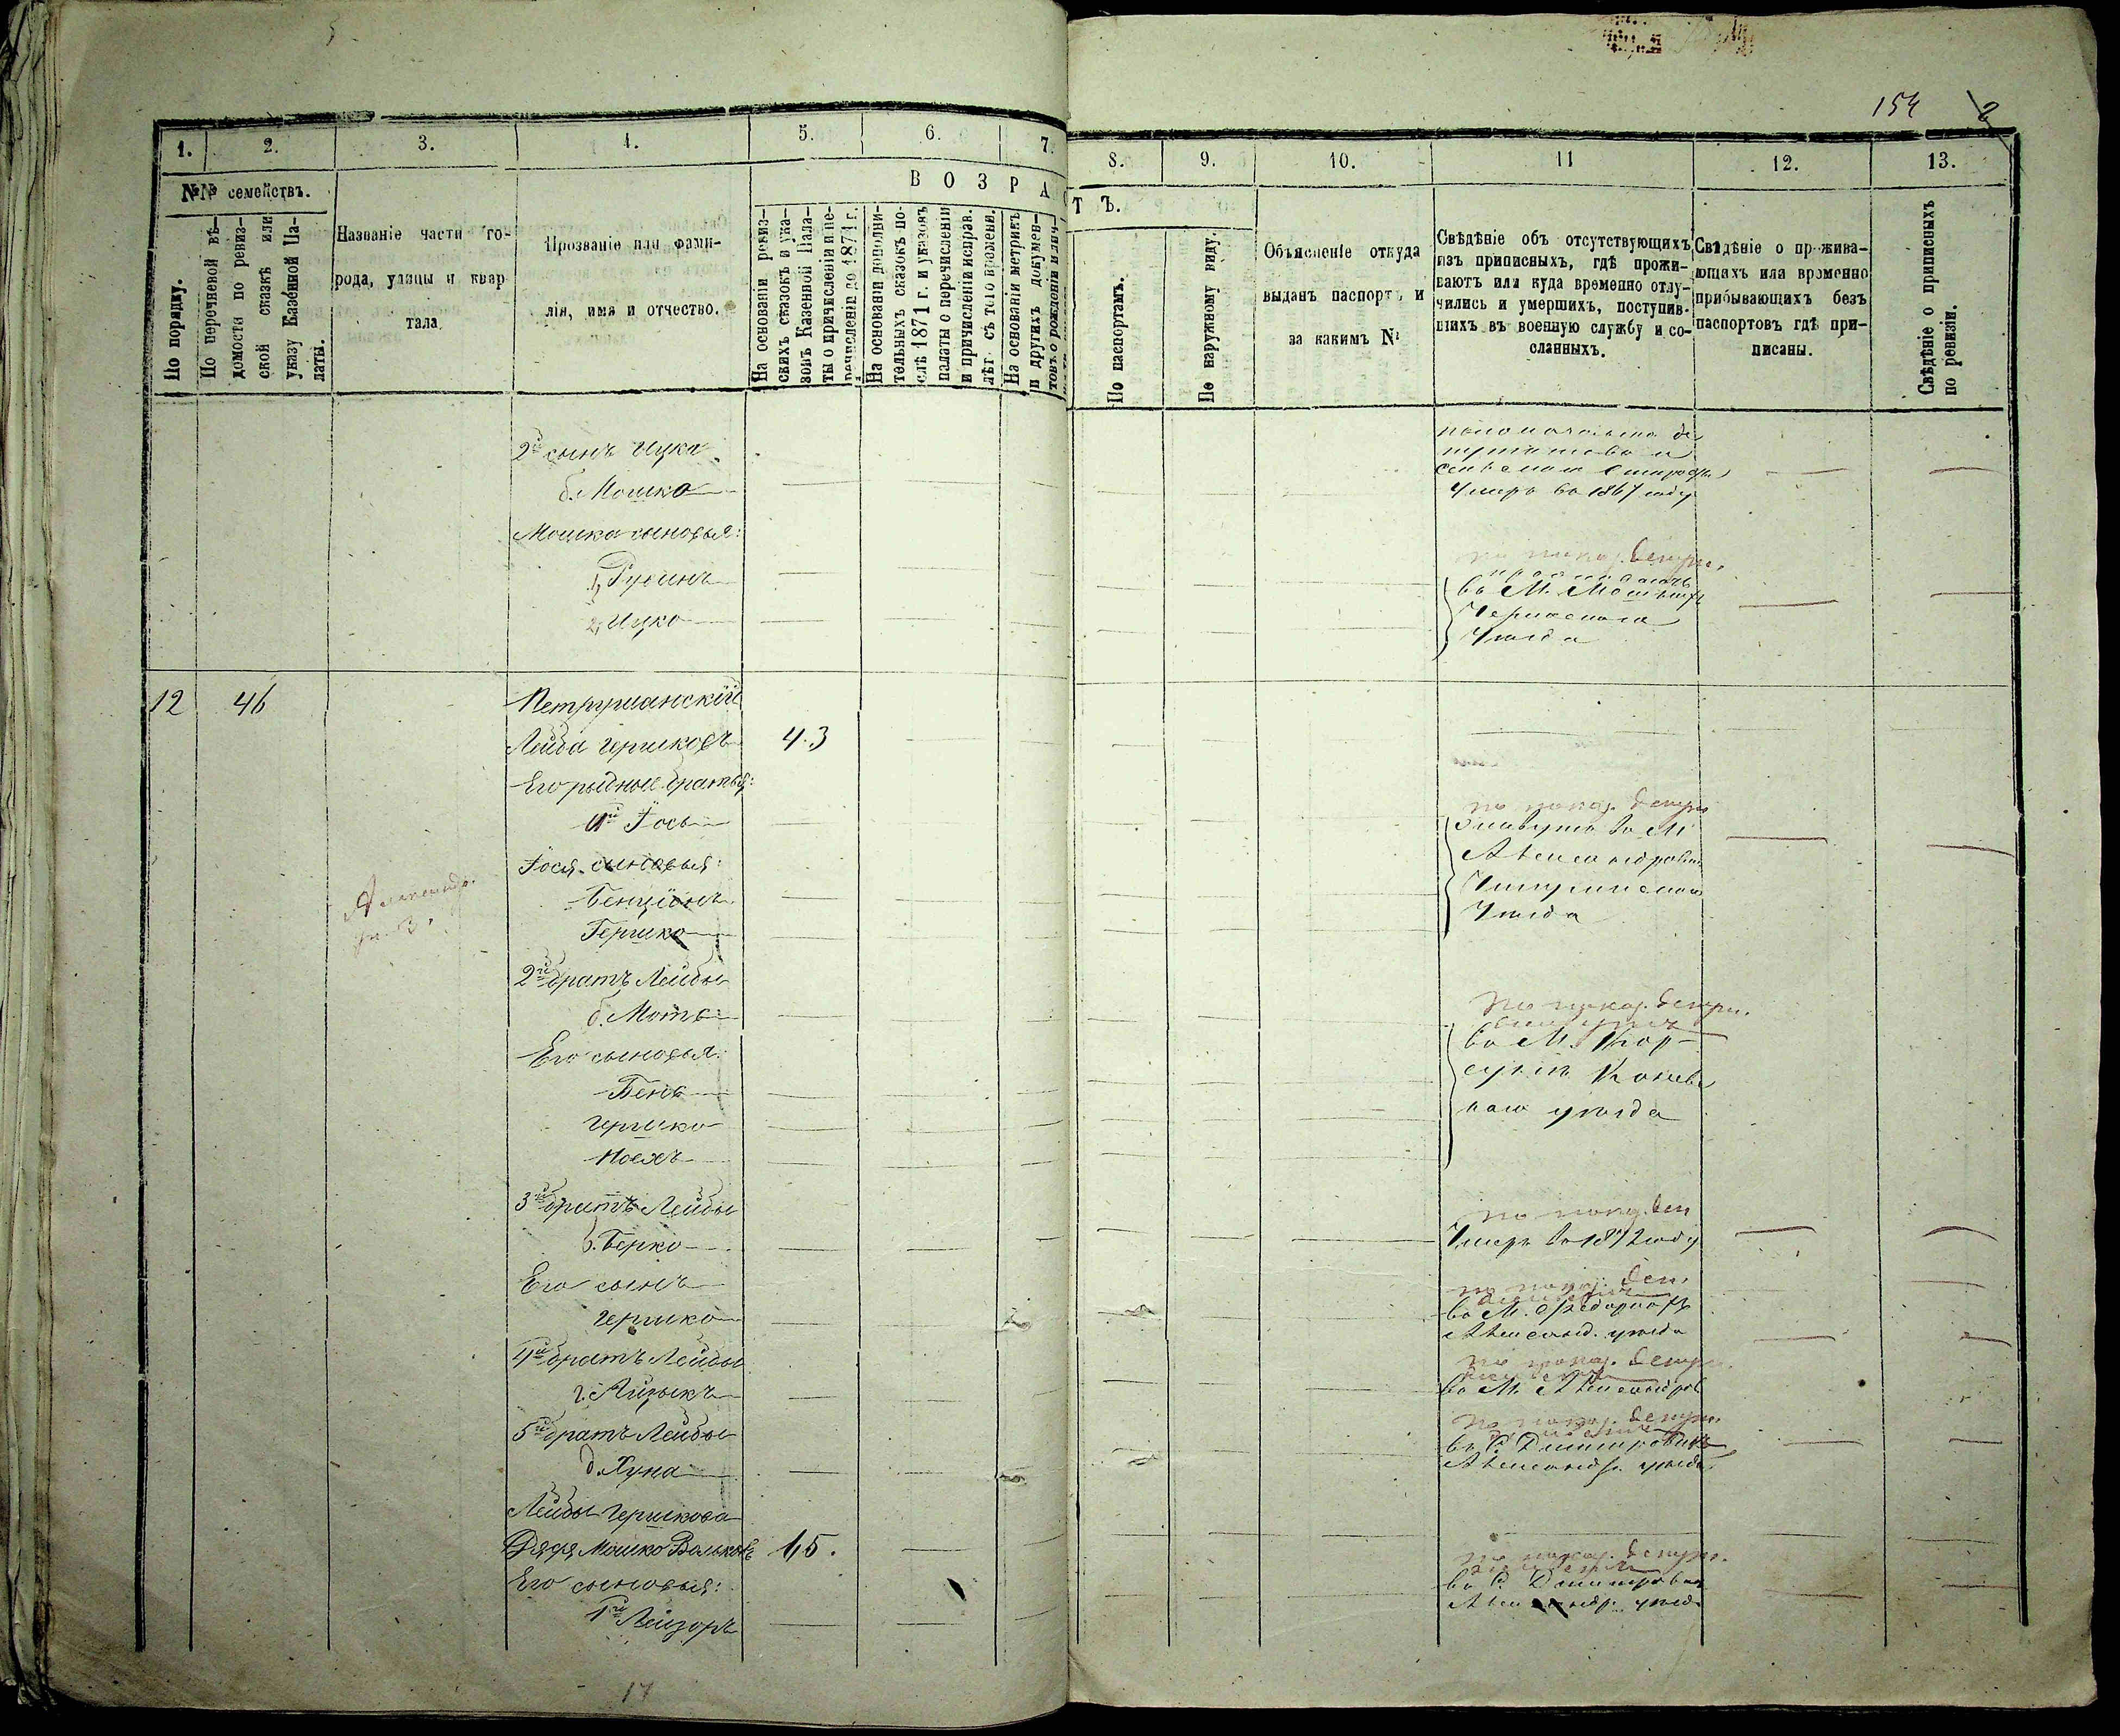 154
2
1.
2.
3.
4.
5.
6.
7.
8.
9.
10.
11
12.
13.
№№ семействъ.
В О З Р А С
Т Ъ.
По порядку.
По перечневой вѣ-
домости по ревиз-
ской сказкѣ или
указу Казенной Па-
латы.
Названіе части го-
рода, улицы и квар-
тала
Прозваніе или фами-
лія, имя и отчество.
На основаніи ревиз-
скихъ сказокъ и ука-
зовъ Казенной Пала-
ты о причисленіи и пе-
речисленіи до 1871 г.
На основаніи дополни-
тельныхъ сказокъ по-
слѣ 1871 г. и указовъ
палаты о перечисленіи
и причисленіи исправ.
лѣт съ того времени.
На основаніи метрикъ
и другихъ докумен-
товъ о рожденіи и
По паспортамъ.
По наружному виду.
Объясненіе откуда
выданъ паспортъ и
за какимъ №
Свѣдѣніе объ отсутствующихъ
изъ приписныхъ, гдѣ прожи-
ваютъ или куда временно отлу-
чились и умершихъ, поступив-
шихъ въ военную службу и со-
сланныхъ.
Свѣдѣніе о прожива-
ющихъ или временно
прибывающихъ безъ
паспортовъ гдѣ при-
писаны.
Свѣдѣніе о приписныхъ
по ревизіи.
2й сынъ Ицка
б. Мошко
Умеръ въ 1867 году
Мошка сыновья:
1, Рувинъ
2, Ицко
въ М.
Черкаскаго
Уѣзда
12 46
Петрушанскій
Лейба Гершковъ 43
Его родные братья:
1й Іось
Іося сыновья:
Бенціонъ
Гершко
по показ. депут.
Живутъ въ М.
Александровкѣ
Чигиринскаго
Уѣзда
2й братъ Лейбы
б. Мотя
Его сыновья:
Бень
Гершко
Носехъ
по показ. депут.
въ М. Кор-
сунѣ Канев-
каго уѣзда
3й братъ Лейбы
в. Берко
по показ. деп
Умеръ въ 1872 году
Его сынъ
Гершко
по показ. деп.
въ М. Федоркахъ
Александ. уѣзда
4й братъ Лейбы
г. Айзыкъ
по показ. депут.
въ М. Александров
5й братъ Лейбы
д. Хуна
по показ. депут.
въ С. Дмитровкѣ
Александр. уѣзда
Лейбы Гершкова
Дядя Мошко Вольковъ 45.
Его сыновья:
1й Лейзоръ
по показ. депут.
въ С. Дмитровкѣ
Александр. уѣзда
17